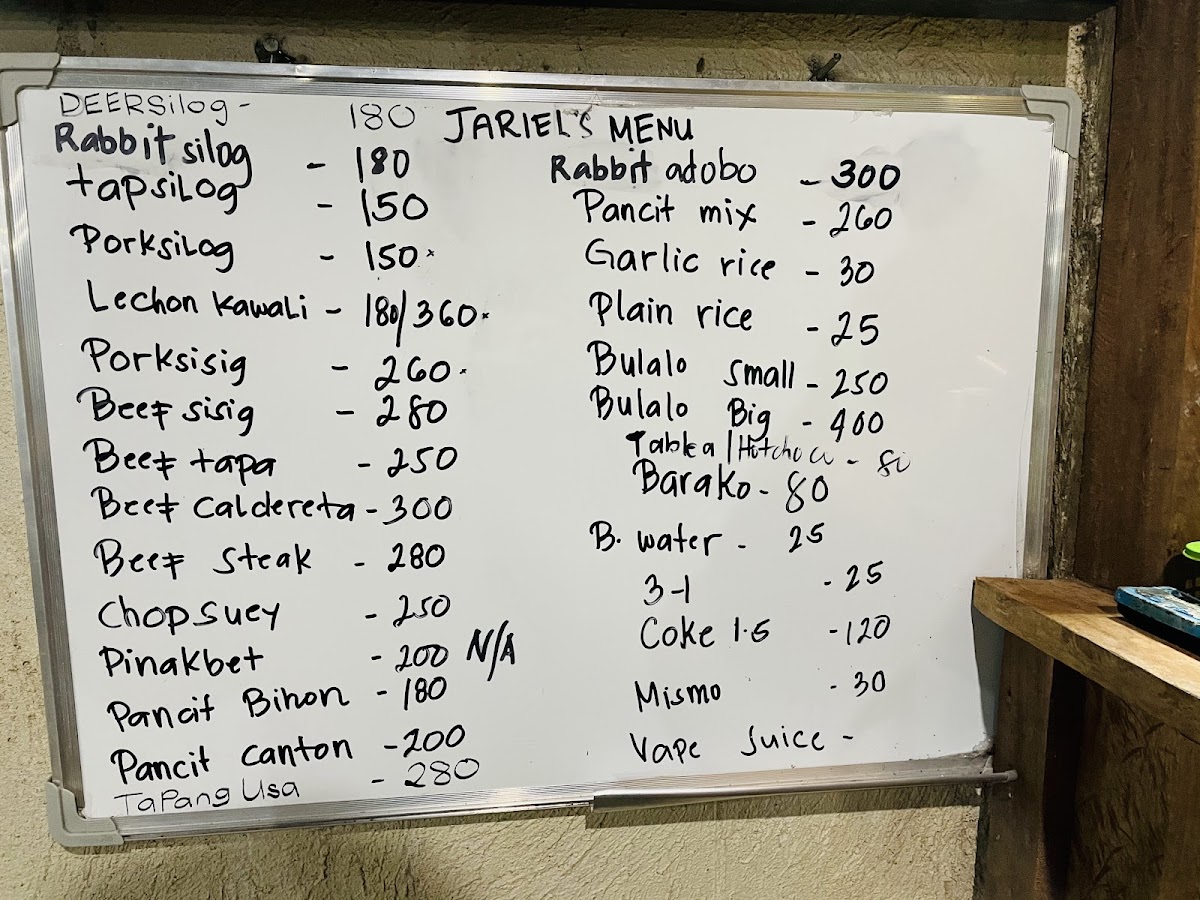 JARIEL'S MENU
DEERSilog - 180
Rabbit silog - 180
tapsilog - 150
Porksilog - 150
Lechon Kawali - 180/360
Porksisig - 260
Beef sisig - 280
Beef tapa - 250
Beef Caldereta - 300
Beef Steak - 280
Chopsuey - 250
Pinakbet - 200 N/A
Pancit Bihon - 180
Pancit Canton - 200
Tapang Usa - 280
Rabbit adobo - 300
Pancit mix - 260
Garlic rice - 30
Plain rice - 25
Bulalo small - 250
Bulalo Big - 400
Tablea/Hotchoco - 80
Barako - 80
B. water - 25
3-1 - 25
Coke 1.5 - 120
Mismo - 30
Vape Juice -